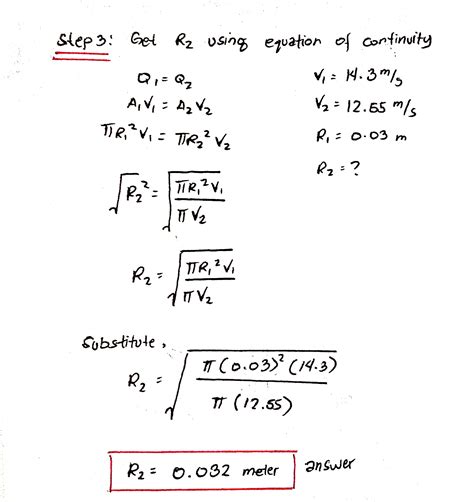 Step 3: Get R₂ using equation of continuity
Q₁ = Q₂
V₁ = 14.3 m/s
A₁V₁ = A₂V₂
V₂ = 12.55 m/s
πR₁²V₁ = πR₂²V₂
R₁ = 0.03 m
R₂ = ?
√R₂² = √(πR₁²V₁ / πV₂)
R₂ = √(πR₁²V₁ / πV₂)
Substitute,
R₂ = √(π(0.03)²(14.3) / π(12.55))
R₂ = 0.032 meter answer